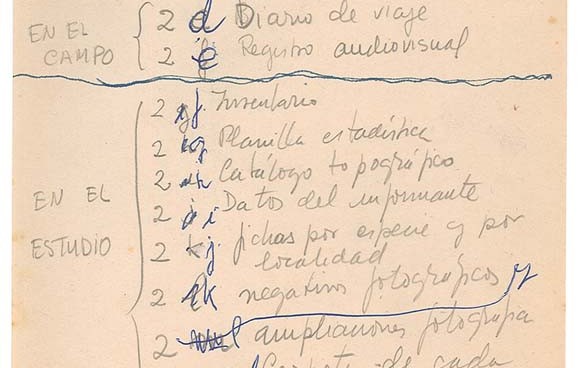 EN EL
CAMPO
2 d Diario de viaje
2 e Registro audiovisual
EN EL
ESTUDIO
2 f. Inventario
2 g Planilla estadística
2 h Catálogo topográfico
2 i Datos del informante
2 j. fichas por especie y por
localidad
2 k negativos fotográficos y
2 l ampliaciones fotografía
Carpeta de cada